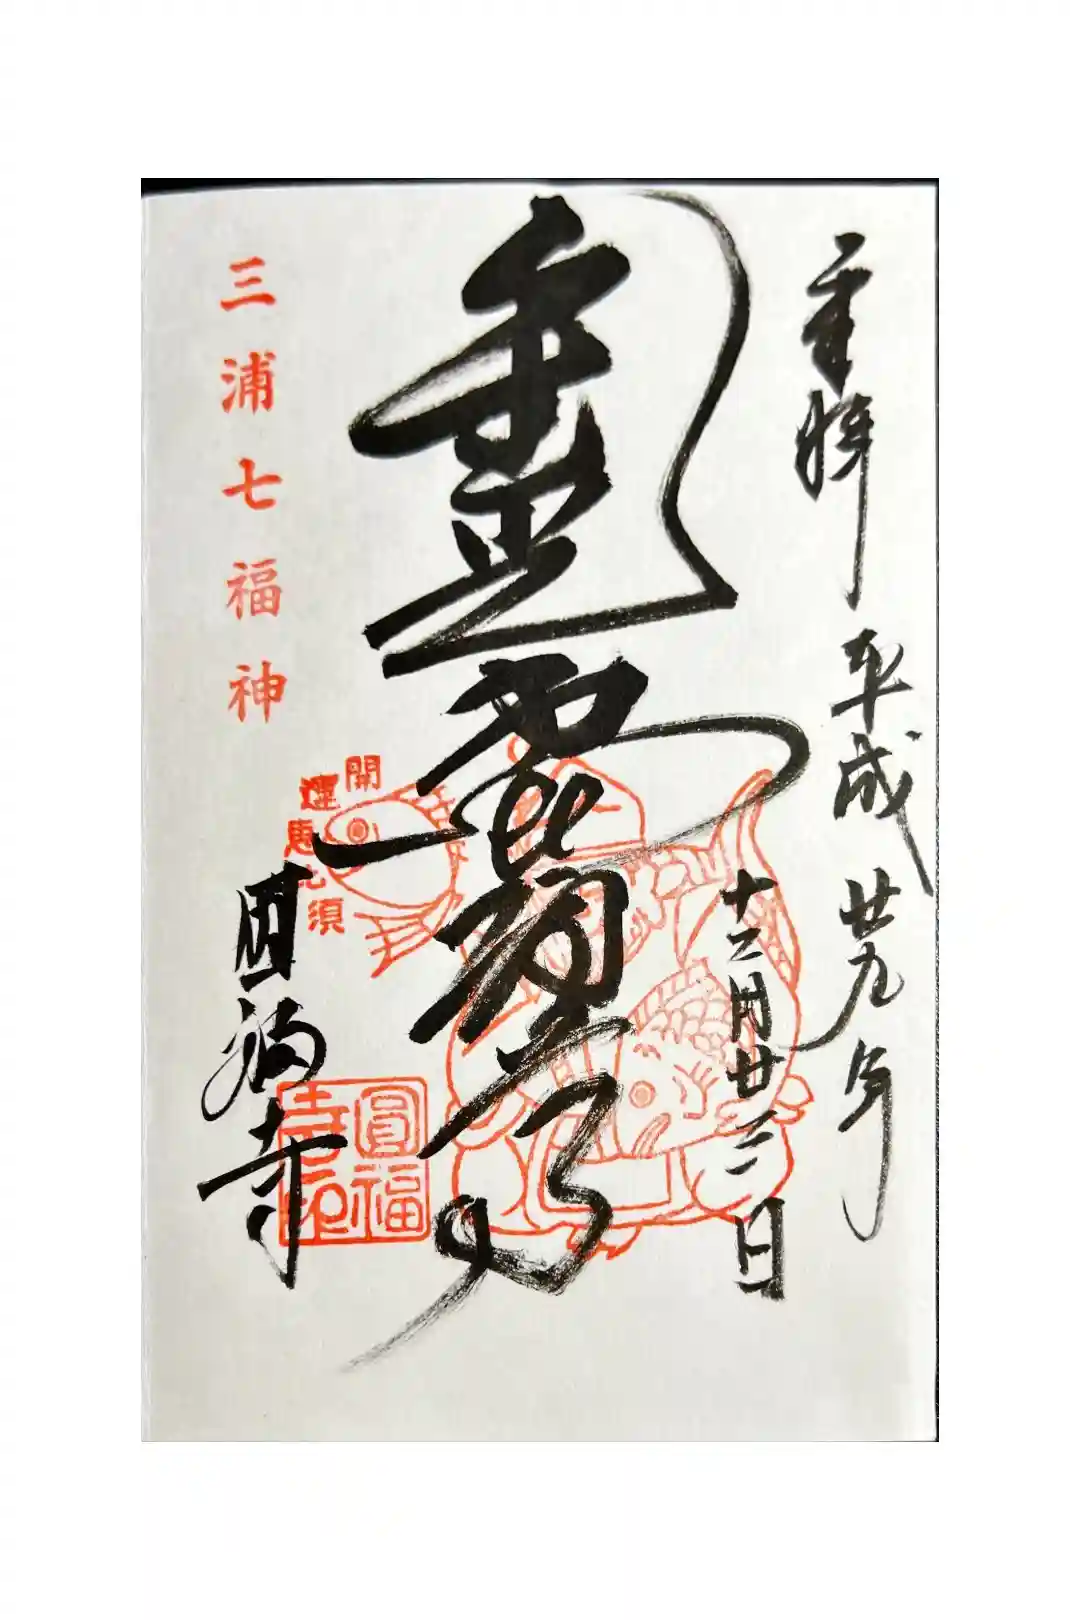 奉拝 平成廿九年
十二月廿三日
三浦七福神
開運恵比須
圓福寺
圓福寺印